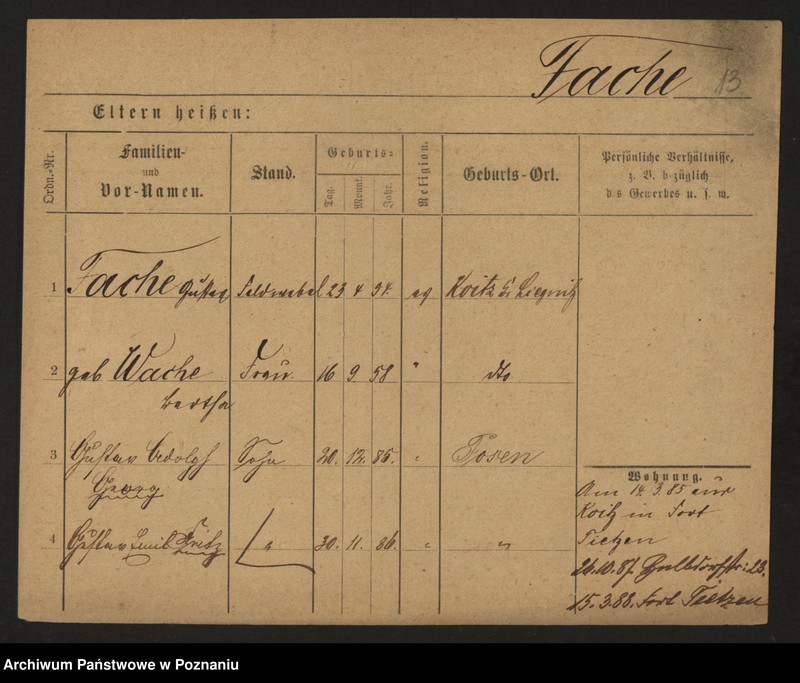 Fache 13
Eltern heißen:
Ordn.-Nr.
Familien- und Vor-Namen.
Stand.
Geburts-
Tag. Monat. Jahr.
Religion.
Geburts-Ort.
Persönliche Verhältnisse,
z. B. bezüglich
des Gewerbes u. s. w.
1 Fache Gustav Feldwebel 23 4 54. ev Koitz Liegnitz
2 geb Wache Frau 16 9. 58 " dto
Bertha
3 Gustav Adolph Sohn 20. 12. 85. " Posen
Georg
4 Gustav Emil Fritz " 30. 11. 86. " "
Wohnung.
Am 14. 3. 85 aus
Koitz in Fort
Tietzen
26.10.87. 23.
15.3.88. Fort Tietzen
Archiwum Państwowe w Poznaniu